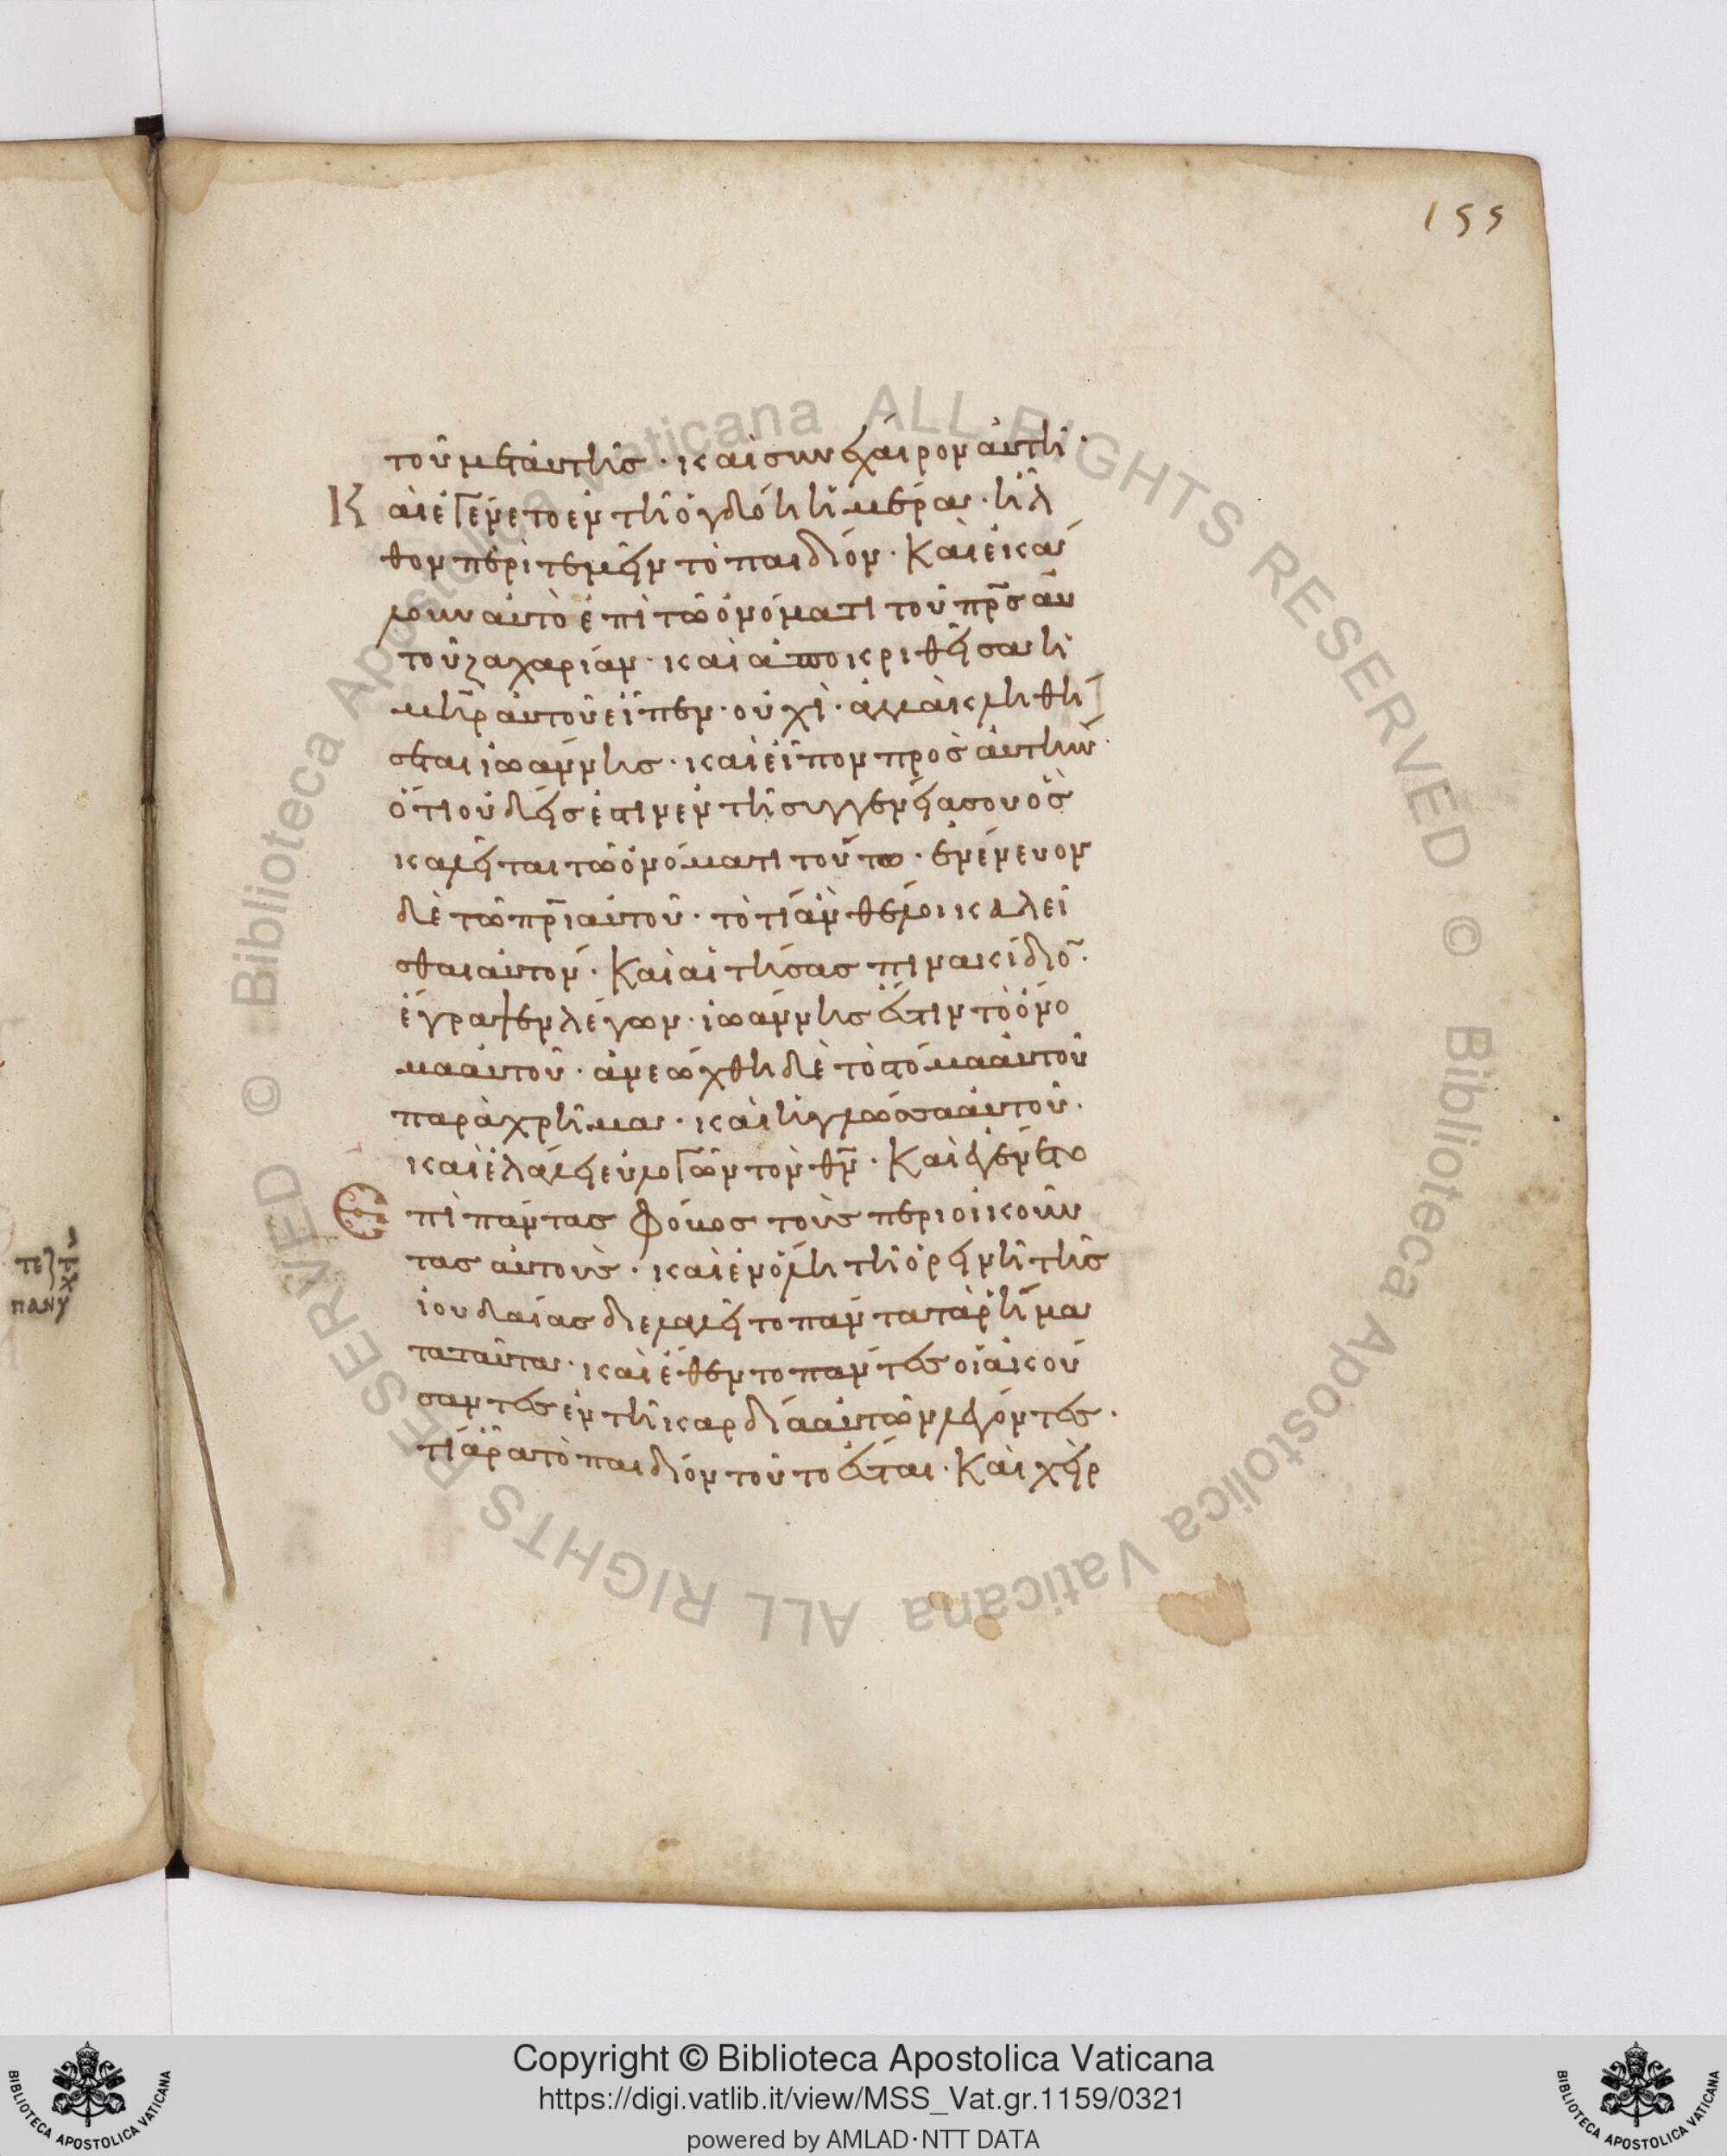 155
τοῦ μετ' αὐτῆς· καὶ συνέχαιρον αὐτῆ·
Καὶ ἐγένετο ἐν τῆ ὀγδόη ἡμέρα· ἦλ
θον περιτεμεῖν τὸ παιδίον· Καὶ ἐκά
λουν αὐτὸ ἐπὶ τῶ ὀνόματι τοῦ πρ̅ς αὐ
τοῦ ζαχαρίαν· καὶ ἀποκριθεῖσα ἡ
μη̅ρ αὐτοῦ εἶπεν· οὐχὶ· ἀλλὰ κληθή
σεται ἰωάννης· καὶ εἶπον πρὸς αὐτὴν·
ὅτι οὐδείς ἐστιν ἐν τῆ συγγενεία σου ὃς
καλεῖται τῶ ὀνόματι τούτω· ἐνένευον
δὲ τῶ πρ̅ι αὐτοῦ· τὸ τί ἂν θέλοι καλεῖ
σθαι αὐτόν· Καὶ αἰτήσας πινακίδιο̅·
ἔγραψεν λέγων· ἰωάννης ἐστὶν τὸ ὄνο
μα αὐτοῦ· ἀνεώχθη δὲ τὸ στόμα αὐτοῦ
παραχρῆμα· καὶ ἡ γλῶσσα αὐτοῦ·
καὶ ἐλάλει εὐλογῶν τὸν θν̅· Καὶ ἐγένετο
ἐπὶ πάντας φόβος τοὺς περιοικοῦν
τας αὐτούς· καὶ ἐν ὅλη τῆ ὀρεινῆ τῆς
ἰουδαίας διελαλεῖτο πάντα τὰ ῥήμα
τα ταῦτα· καὶ ἔθεντο πάντες οἱ ἀκού
σαντες ἐν τῆ καρδία αὐτῶν λέγοντες·
τί ἄρα τὸ παιδίον τοῦτο ἔσται· Καὶ χεὶρ
Copyright © Biblioteca Apostolica Vaticana
https://digi.vatlib.it/view/MSS_Vat.gr.1159/0321
powered by AMLAD·NTT DATA
BIBLIOTECA APOSTOLICA VATICANA
BIBLIOTECA APOSTOLICA VATICANA
© Biblioteca Apostolica Vaticana ALL RIGHTS RESERVED © Biblioteca Apostolica Vaticana ALL RIGHTS RESERVED